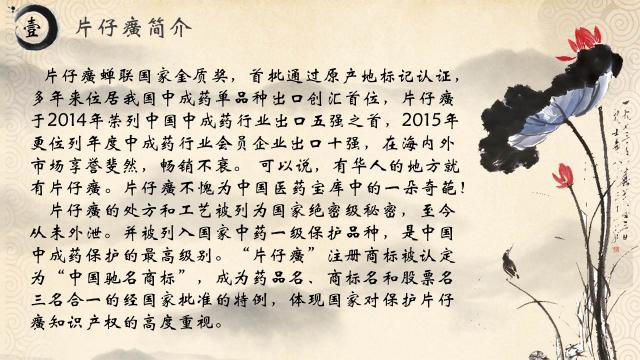 壹 片仔癀简介
片仔癀蝉联国家金质奖，首批通过原产地标记认证，
多年来位居我国中成药单品种出口创汇首位，片仔癀
于2014年荣列中国中成药行业出口五强之首，2015年
更位列年度中成药行业会员企业出口十强，在海内外
市场享誉斐然，畅销不衰。 可以说，有华人的地方就
有片仔癀。片仔癀不愧为中国医药宝库中的一朵奇葩!
片仔癀的处方和工艺被列为国家绝密级秘密，至今
从未外泄。并被列入国家中药一级保护品种，是中国
中成药保护的最高级别。“片仔癀”注册商标被认定
为“中国驰名商标”，成为药品名、商标名和股票名
三名合一的经国家批准的特例，体现国家对保护片仔
癀知识产权的高度重视。